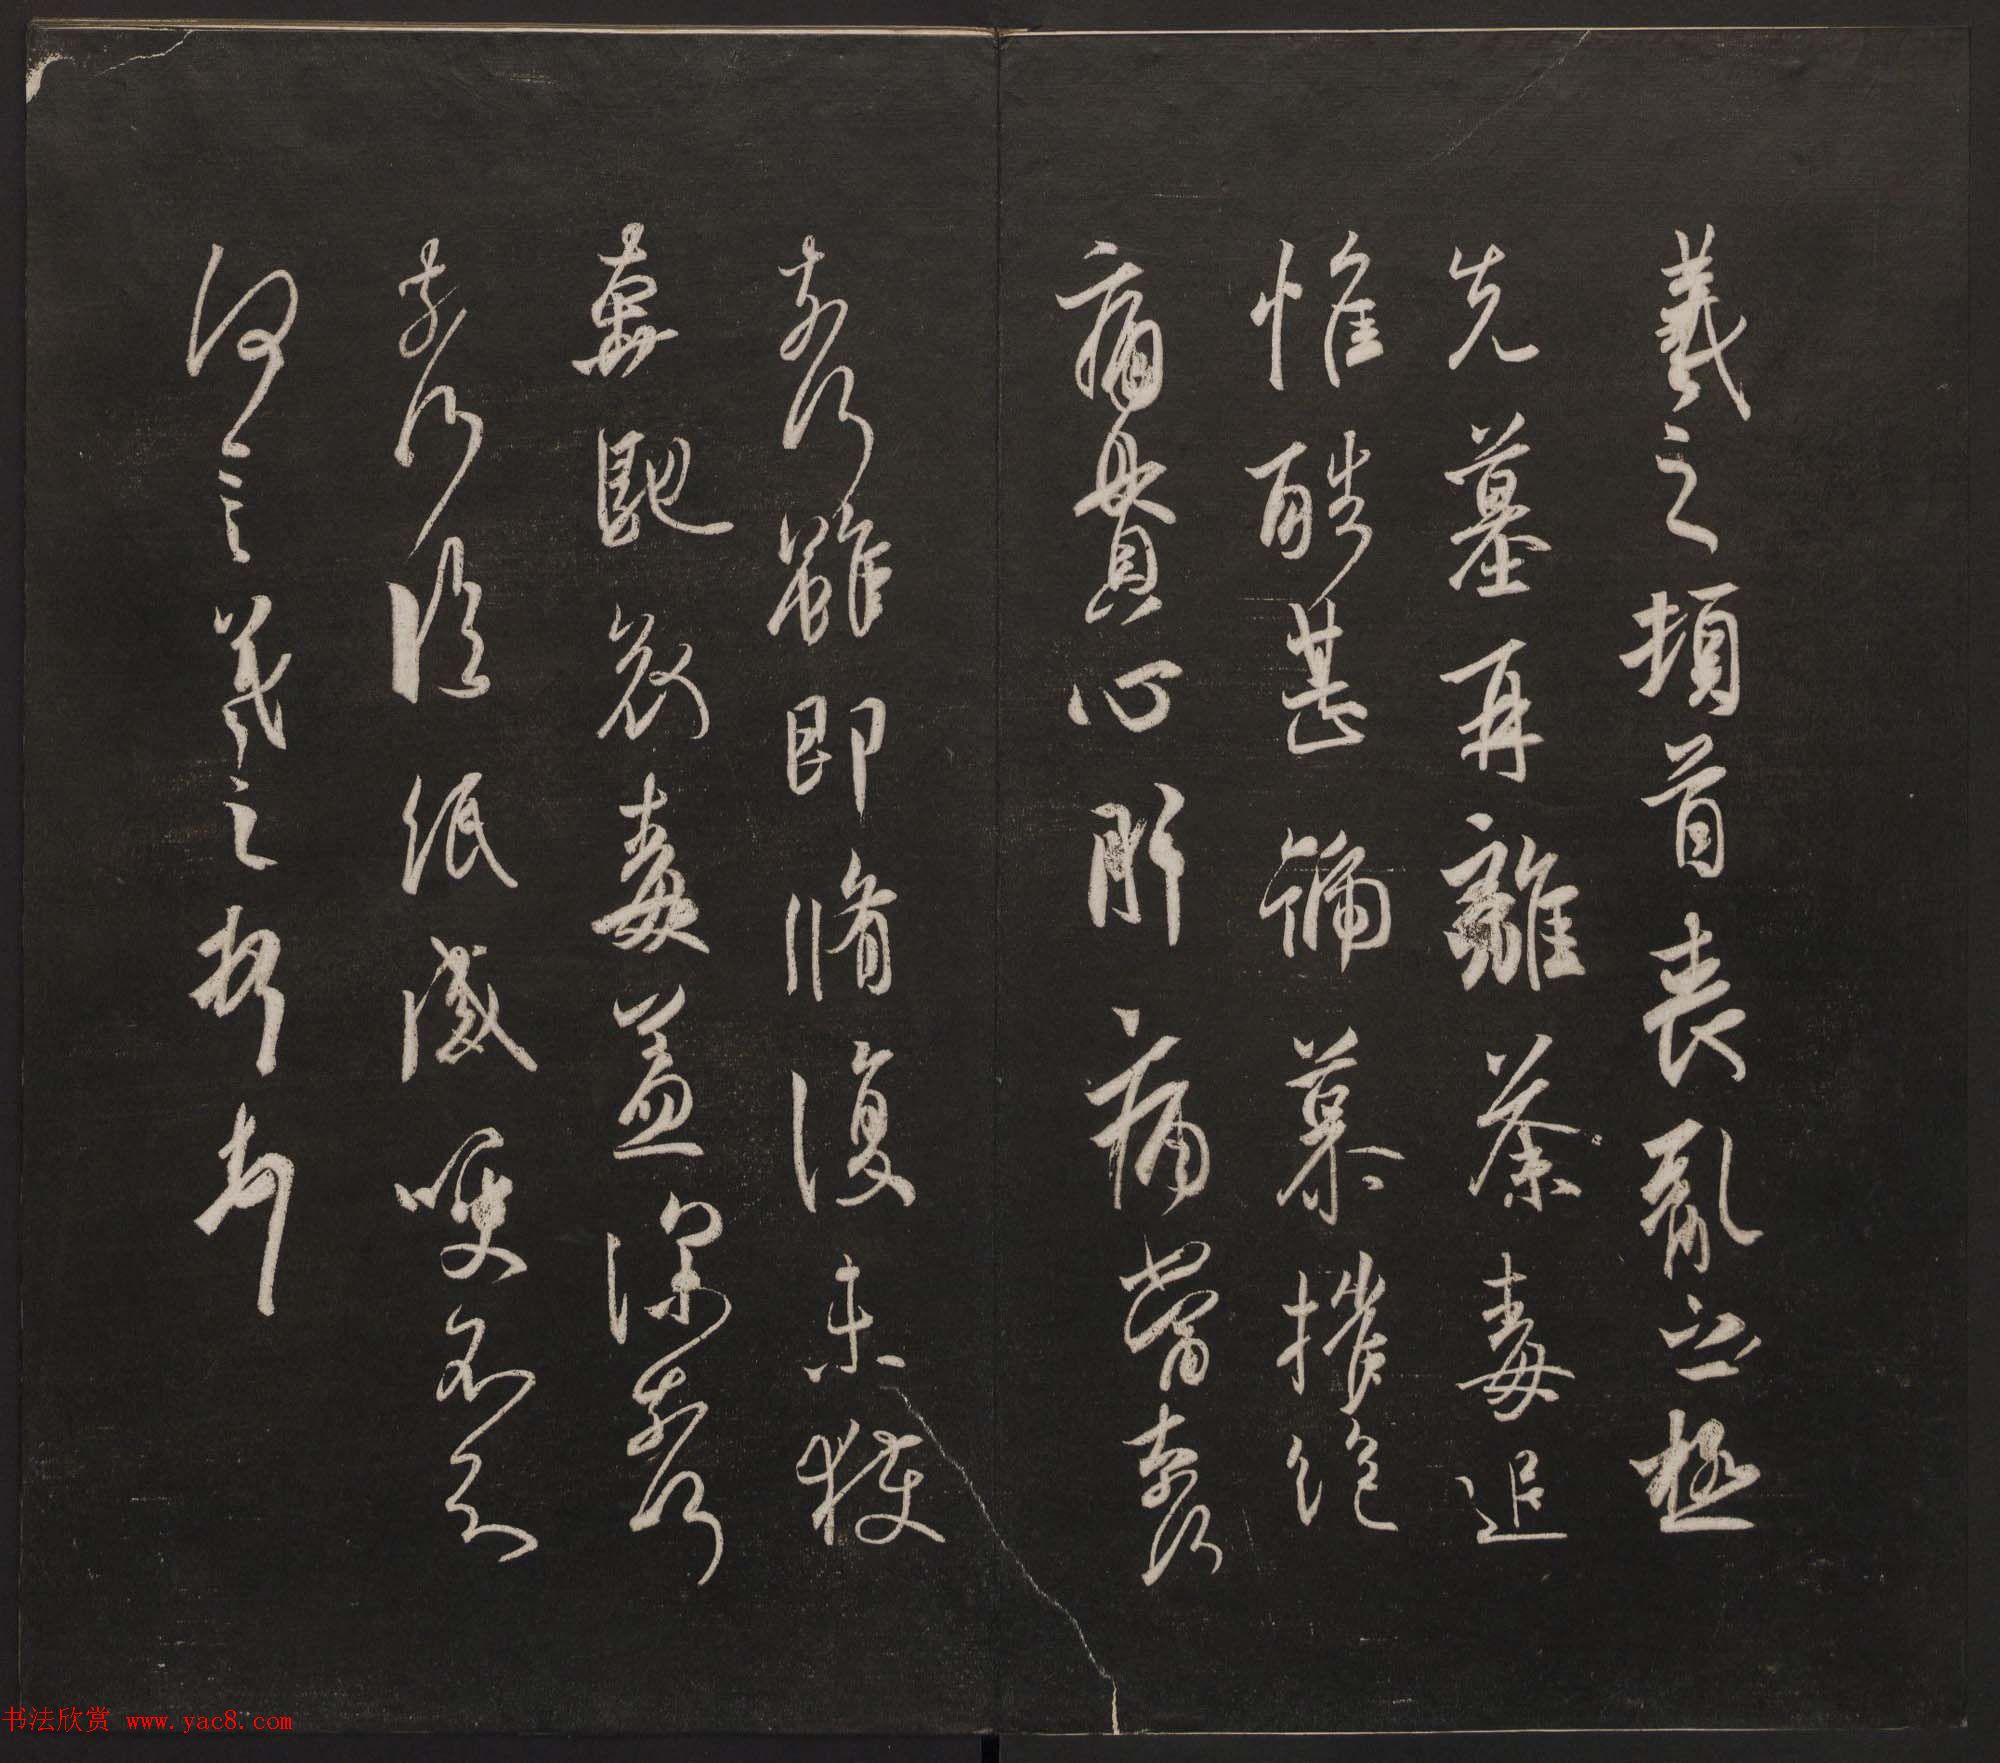 羲之頓首喪亂之極
先墓再離荼毒追
惟酷甚號慕摧絕
痛貫心肝痛當奈何
奈何雖即脩復未獲
奔馳哀毒益深奈何
奈何臨紙感哽不知
何言羲之頓首
书法欣赏 www.yac8.com